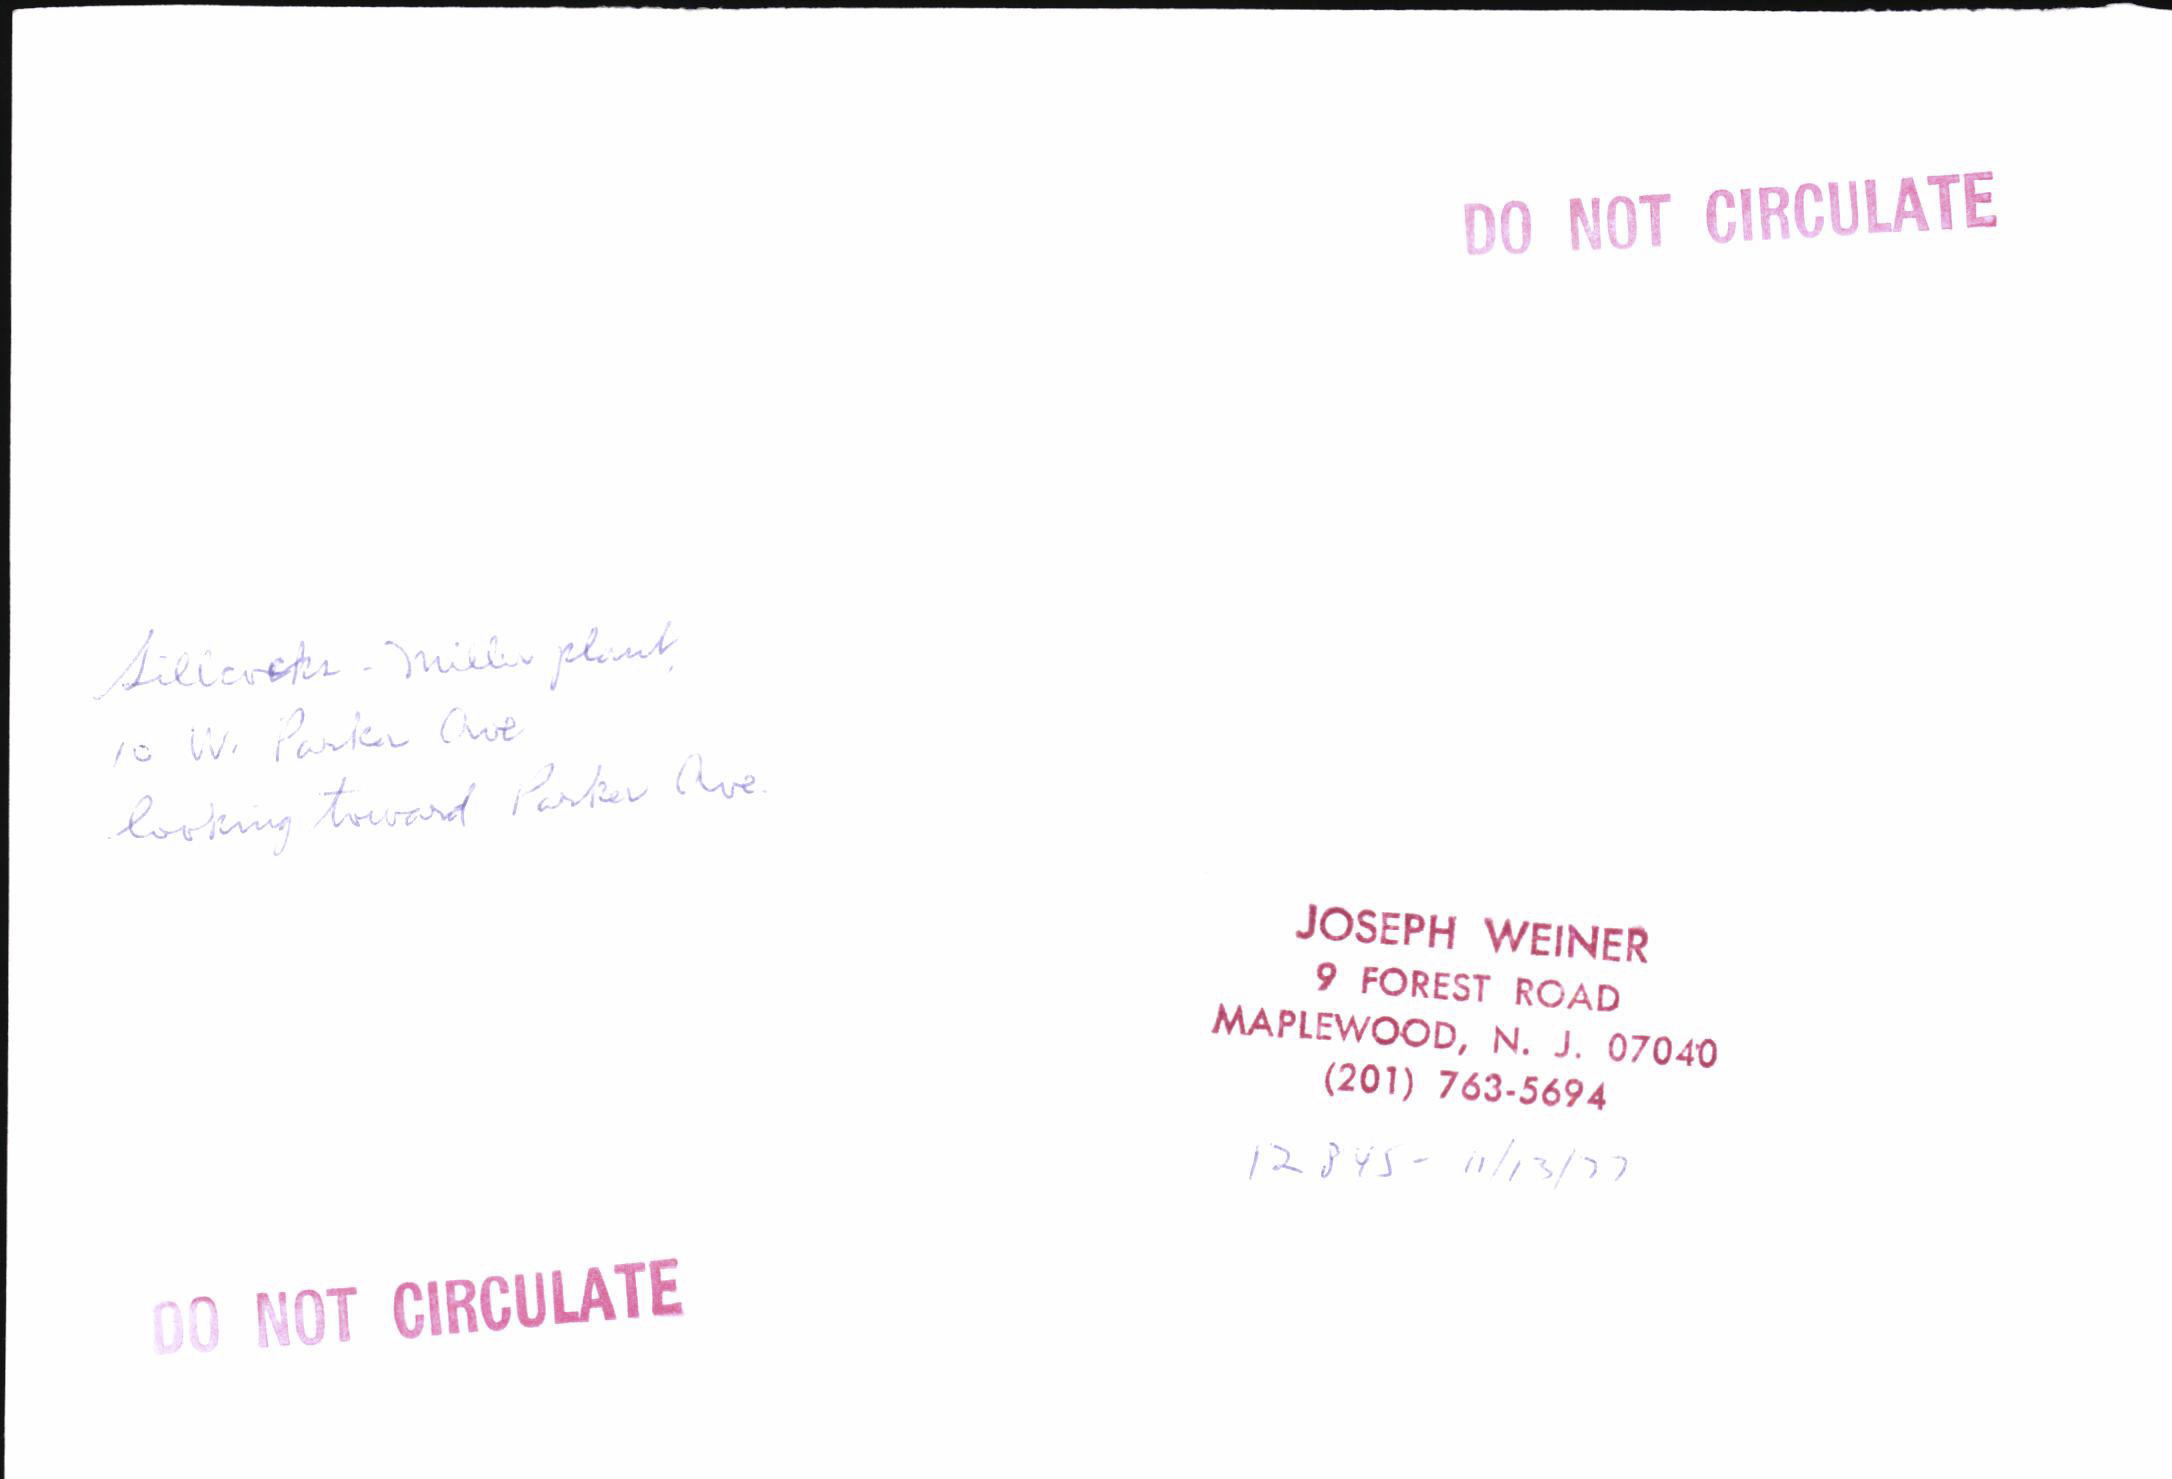 DO NOT CIRCULATE
Sillcocks-Miller plant,
10 W. Parker Ave
looking toward Parker Ave.
JOSEPH WEINER
9 FOREST ROAD
MAPLEWOOD, N. J. 07040
(201) 763-5694
12845- 11/13/77
DO NOT CIRCULATE